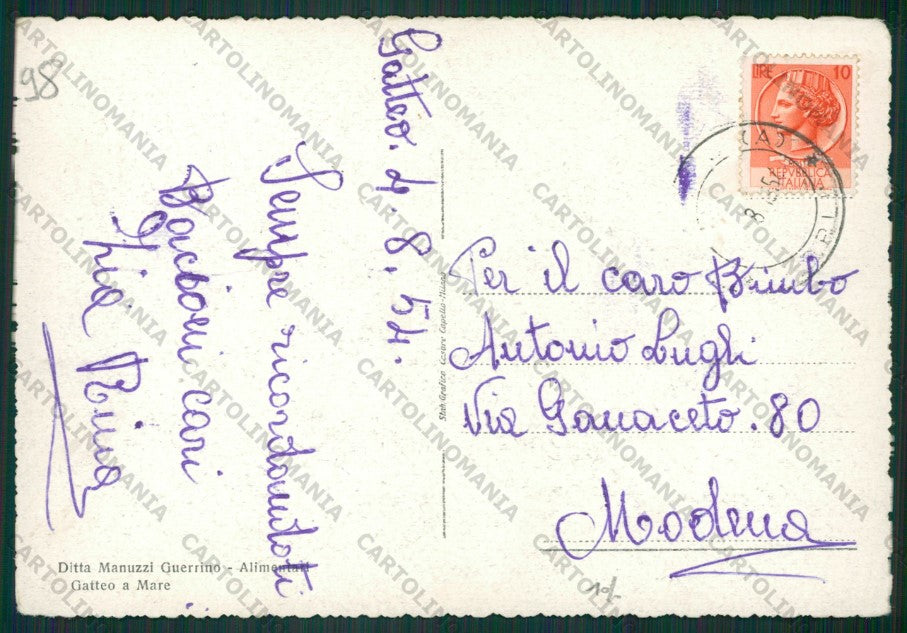 98
Gatteo. 4. 8. 54.
Sempre ricordandoti
Bacioni cari
Zia Rina
Ditta Manuzzi Guerrino - Alimentari
Gatteo a Mare
Stab. Grafico Cesare Capello - Milano
LIRE 10
REPUBBLICA
ITALIANA
Per il caro Bimbo
Antonio Lugli
Via Ganaceto. 80
Modena
10/-
CARTOLINOMANIA